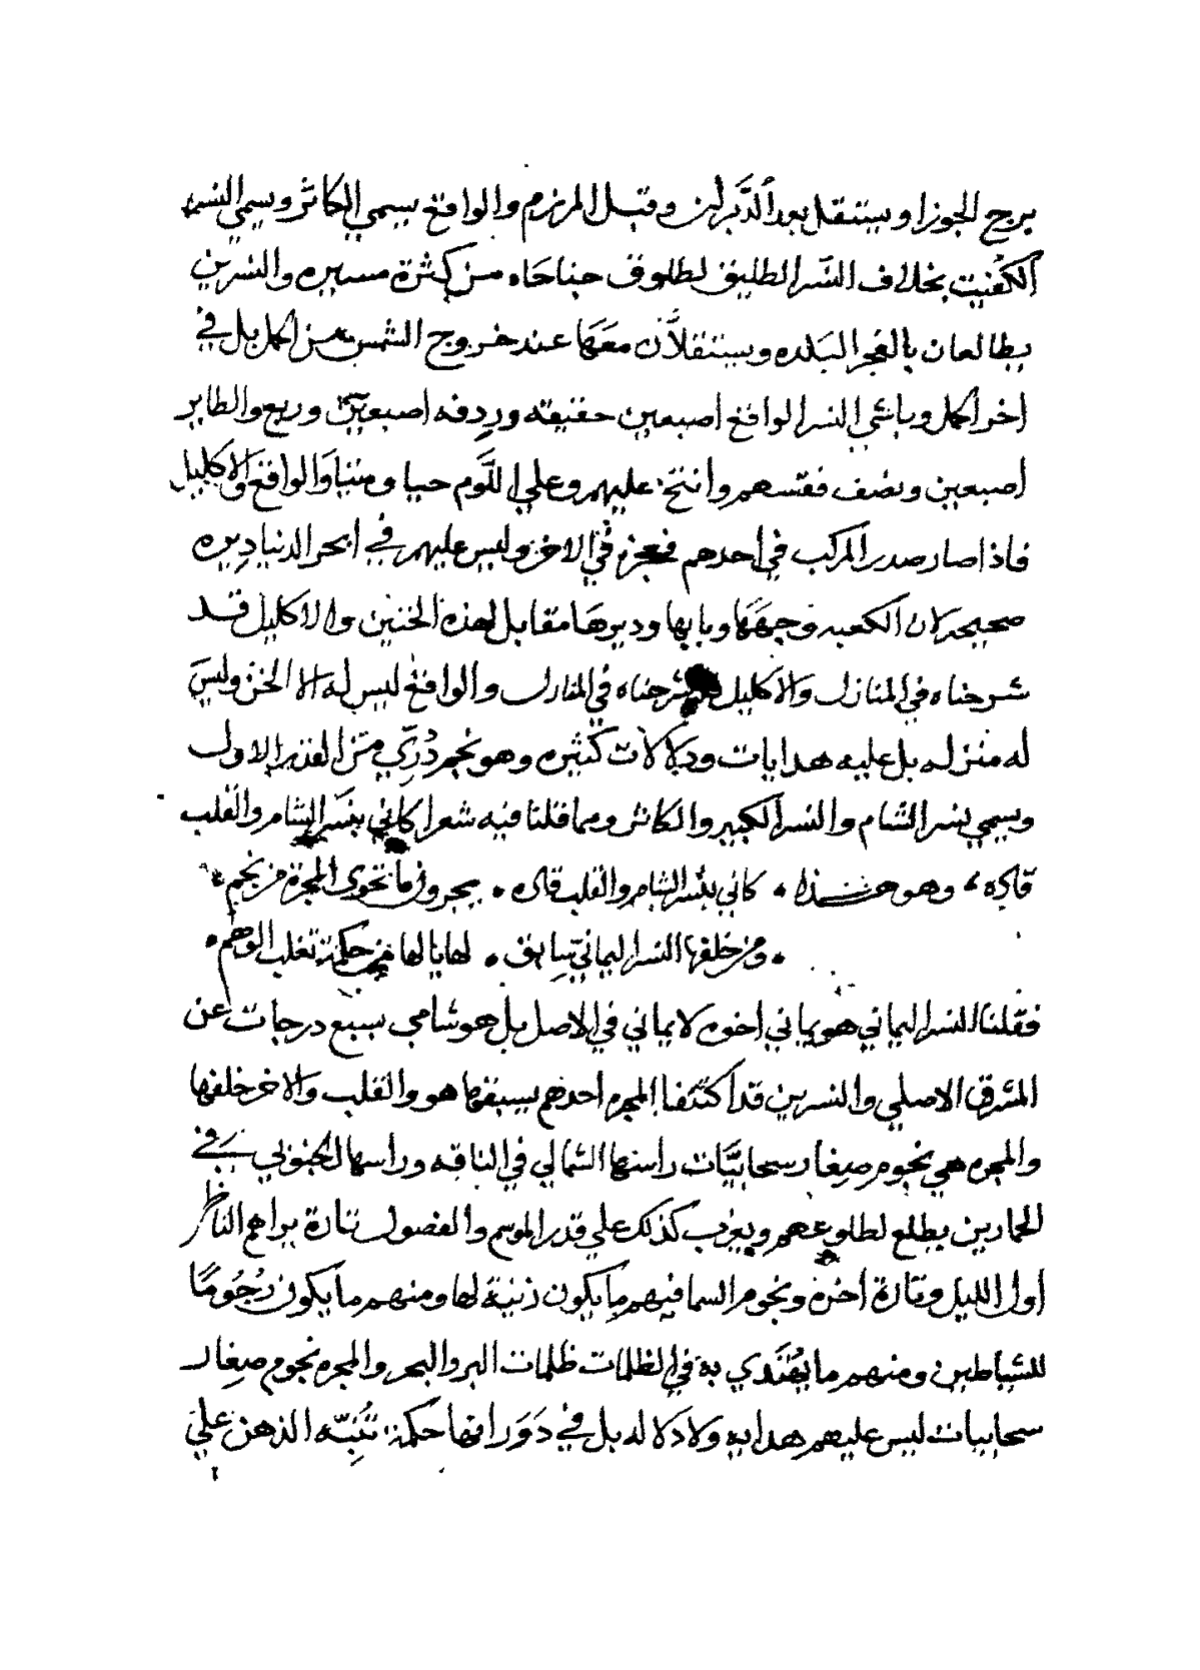 برج الجوزا ويستنقل بعد الدَّبران وقبل المرزم والواقع يسمي الكاثر ويسمي النسر
الكفيت بخلاف النسر الطليق لطلوق جناحاه من كثرة مسيره والنسرين
يطالعان بالفجر البلده ويستنقلان معَهَا عند خروج الشمس من الحمل بل في
اخر الحمل وباشي النسر الواقع اصبعين حقيقه وردفه اصبعين وربع والطاير
اصبعين ونصف فقسهم وانتخ عليهم وعلي اللَّوم حيا ومتيا والواقع والاكليل
فاذا صار صدر المركب في احدهم فعجزه في الاخر وليس عليهم في ابحر الدنيا ديره
صحيحه لان الكعبه وجهَهَا وبابها وديرهَا مقابل لهذه الخنين والاكليل قد
شرحناه في المنازل والاكليل شرحناه في المنازل والواقع ليس له الا الخن وليسَ
له منزله بل عليه هدايات ودلالات كثيره وهو نجم دُرّي من القدر الاول
ويسمي نسر الشام والنسر الكبير والكاثر ومما قلنا فيه شعرا كاني بنسر الشام والقلب
قاده وهو هذا كاني بنسر الشام والقلب قاده يجرون ما تحوي المجرة من نجم
ومن خلفها النسر اليماني سايق لها يا لها من حكمة تغلب الوهم
فقلنا النسر اليماني هو يماني اخوه لا يماني في الاصل بل هو شامي بسبع درجات عن
المشرق الاصلي والنسرين قد اكتنفا المجره احدهم يسبقها هو والقلب والاخر خلفها
والمجره هي نجوم صغار سحابيَّات راسها الشمالي في الناقه وراسها الجنوبي في
الحمارين يطلع لطلوعهم ويغرب كذلك علي قدر الموسم والفصول تارة يراهم الناظر
اول الليل وتارة اخره ونجوم السما فيهم ما يكون زنية لها ومنهم ما يكون رُجُومًا
للشياطين ومنهم ما يهتدي به في الظلمات ظلمات البر والبحر والمجره نجوم صغار
سحابيات ليس عليهم هدايه ولا دلاله بل في دَوَرانها حكمة تُنَبِّه الذهن علي